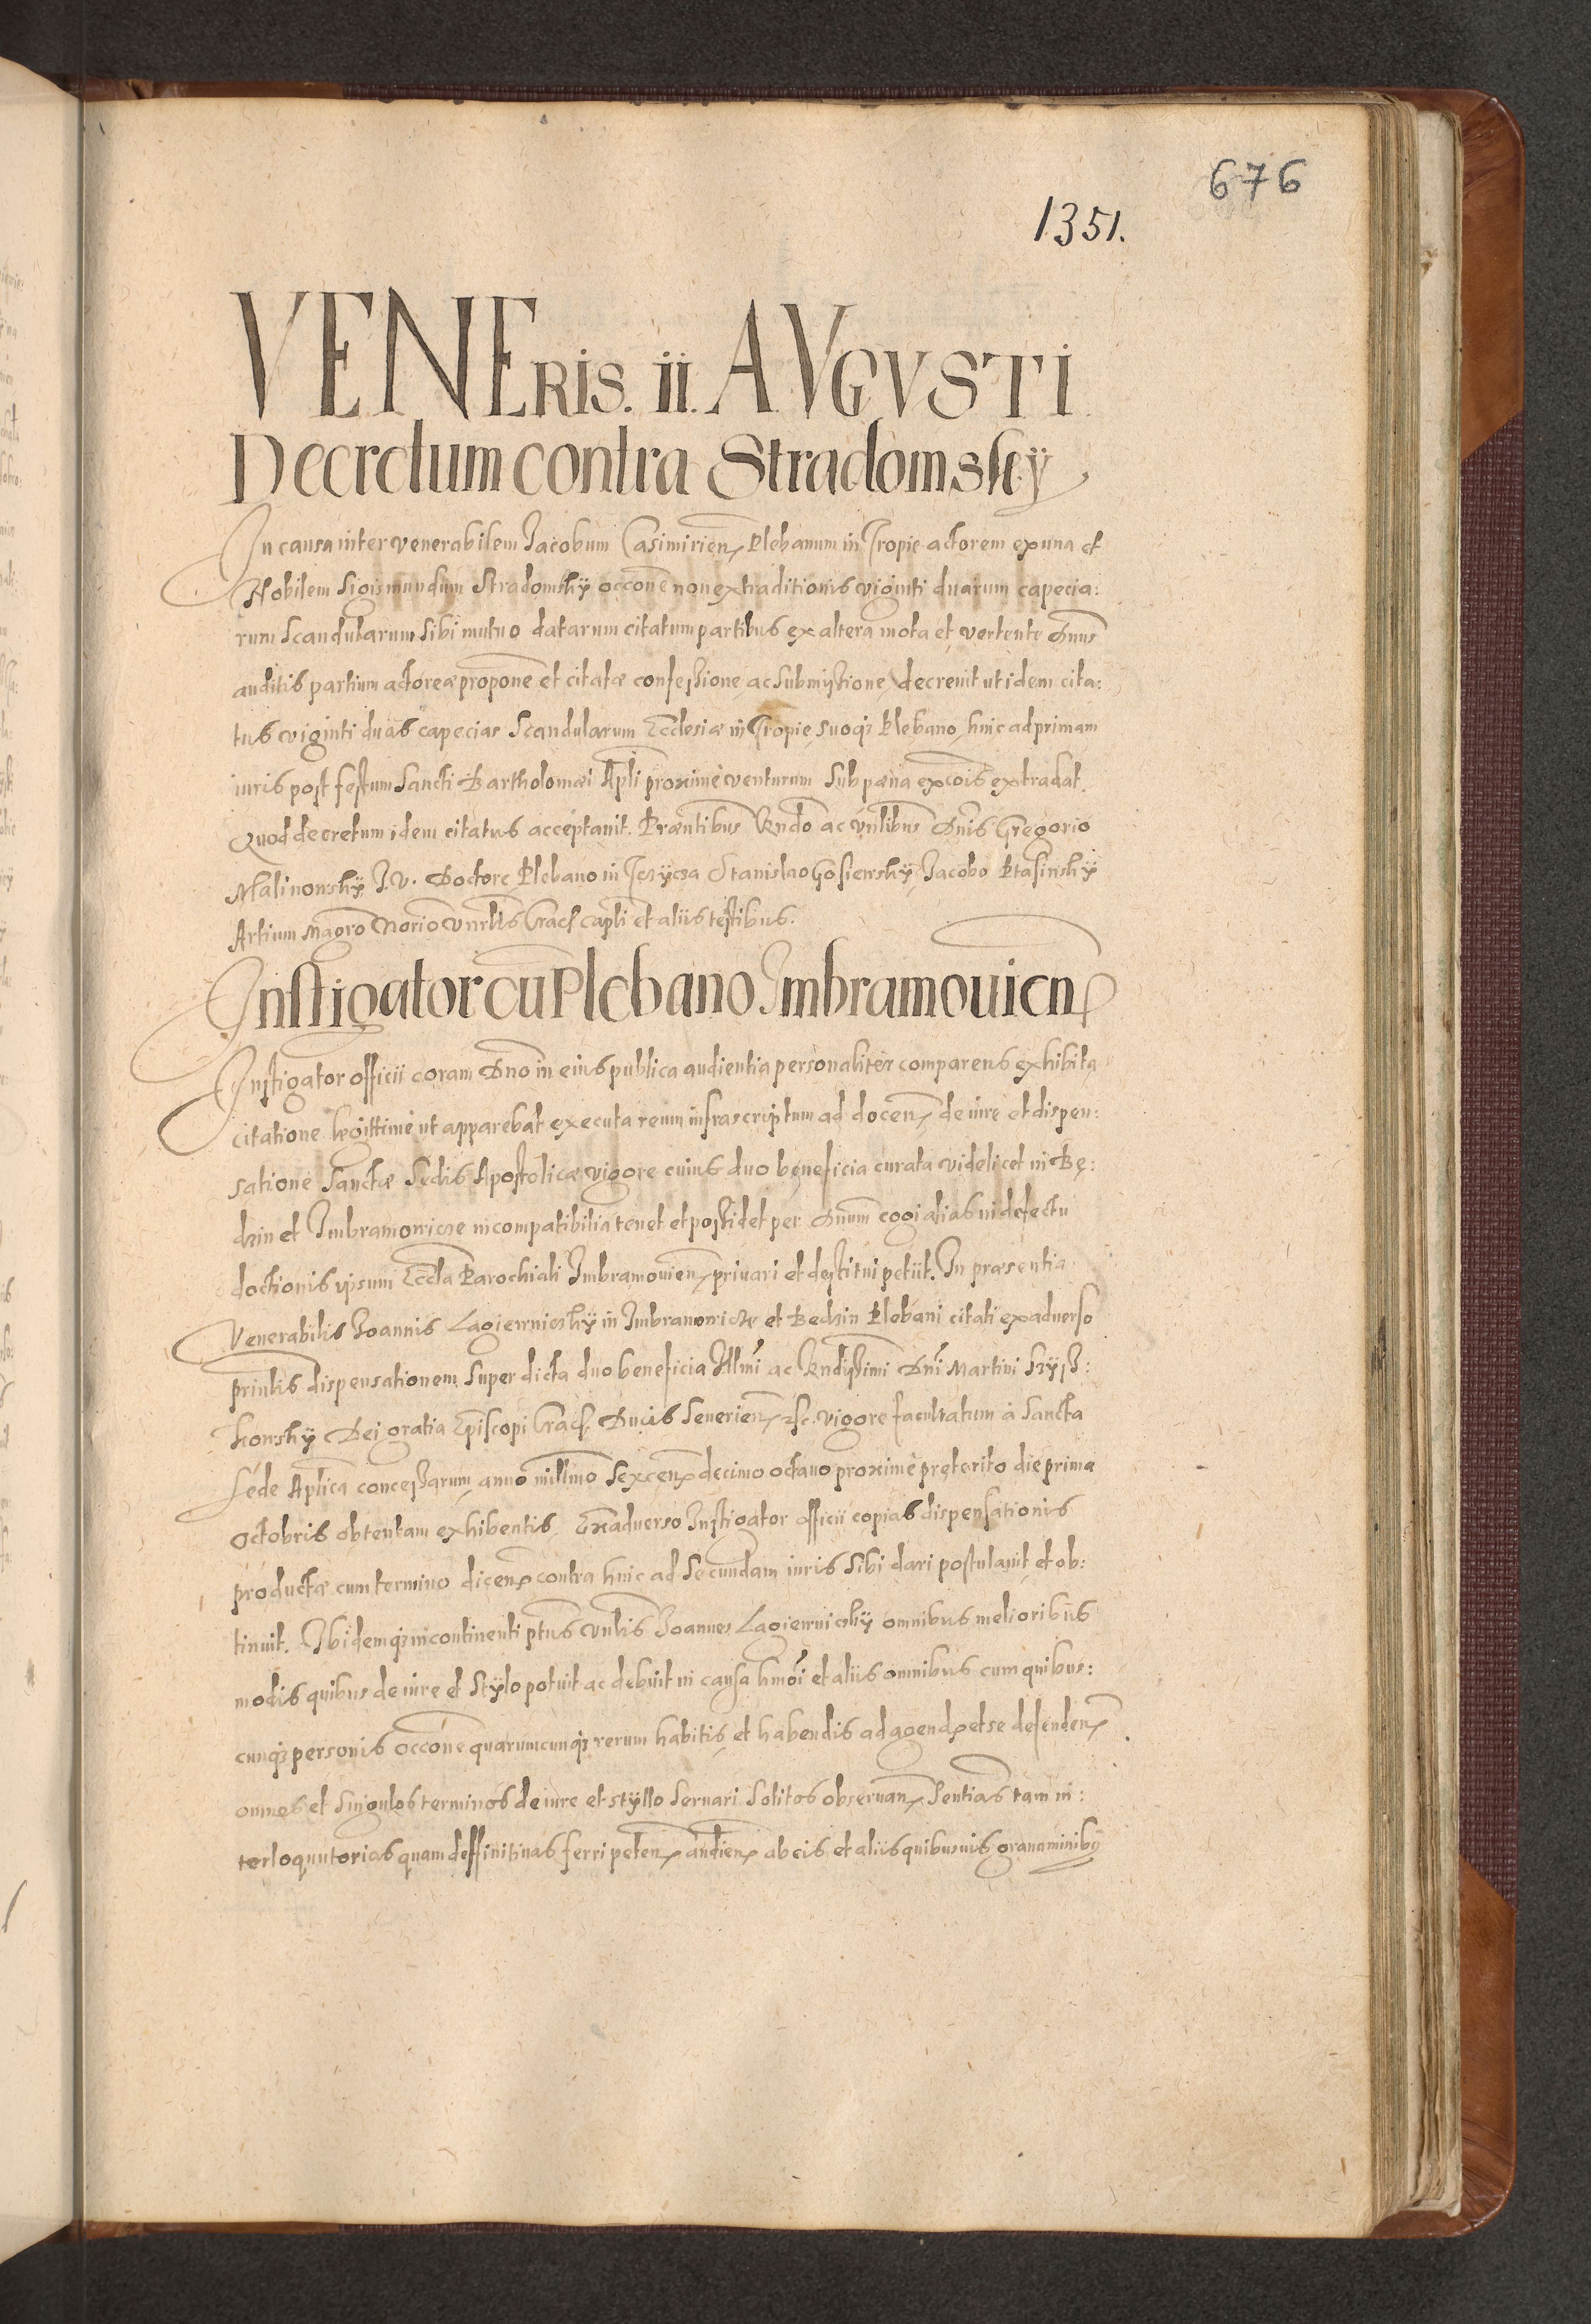 676
1351.
VENEris. ii. AVGVSTI
Decretum contra Stradomskÿ
In causa inter venerabilem Jacobum Casimirien, Plebanum in Tropie actorem ex una et
Nobilem Sigismundum Stradomskÿ occone non extraditionis viginti duarum capecia:
rum Scandularum sibi mutuo datarum citatum partibus ex altera mota et vertente Dnus
auditis partium actoreæ propone et citatæ confessione ac submissione, decrevit ut idem cita:
tus viginti duas capecias Scandularum Ecclesiæ in Tropie, suoq3 Plebano hinc ad primam
iuris post festum Sancti Bartholomæi Apli proximè venturum sub pæna excois extradat.
Quod decretum idem citatus acceptavit. Præntibus Rndo ac Vnlibus Dnis Gregorio
Malinonskÿ J.V. Doctore Plebano in Stanislao Gosienskÿ Jacobo Ptasinskÿ
Artium Magro Norio Vnrlis Crac capli et aliis testibus.
Instigator cū Plebano Imbramouien
Instigator officii coram Dno in eius publica audientia personaliter comparens exhibita
citatione legittimè ut apparebat executa reum infrascriptum ad docen, de iure et dispen:
satione Sanctæ Sedis Apostolicæ vigore cuius duo beneficia curata videlicet in Bę:
dzin et Imbramowicze incompatibilia tenet et possidet per Dnum cogi alias in defectu
doctionis ipsum Eccla Parochiali Imbramouien, privari et destitui petiit. In præsentia
Venerabilis Joannis Lagiewnicskÿ in Imbramowicze et Bedzin Plebani citati ex adverso
printis dispensationem super dicta duo beneficia Illmi ac Rndissimi Dni Martini Szÿss:
konskÿ Dei gratia Episcopi Crac, Ducis Severien, etc. vigore facultatum à Sancta
Sede Aplica concessarum, anno millmo Sexcen, decimo octavo proximè preterito die prima
Octobris obtentam exhibentis, Ex adverso Instigator officii copias dispensationis
productæ cum termino dicen, contra hinc ad Secundam iuris sibi dari postulavit et ob:
tinuit. Ibidemq3 incontinenti ptus Vnlis Joannes Lagiewnicskÿ omnibus melioribus
modis quibus de iure et Stÿlo potuit ac debuit in causa hmoi et aliis omnibus cum quibus:
cunq3 personis occone quarumcunq3 rerum habitis et habendis ad agend, et se defenden,
omnes et singulos terminos de iure et stÿllo servari solitos observan, Sentias tam in:
terloquutorias quam deffinitivas ferri peten, audien, ab eis et aliis quibusvis gravaminibus